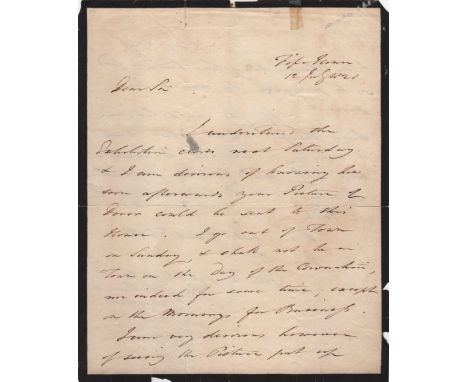 Fife House
12 July 1821
Dear Sir
I understand the
Exhibition closes next Saturday
& I am desirous of knowing how
soon afterwards your Picture of
Dover could be sent to this
House. I go out of Town
on Sunday, & shall not be in
Town on the Day of the Coronation,
nor indeed for some time, except
on the Mornings for Business.
I am very desirous however
of seeing the Picture put up